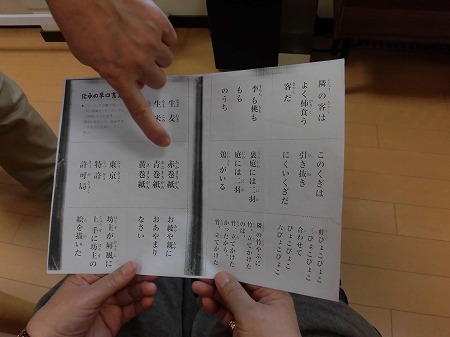 隣の客は
よく柿食う
客だ
李も桃も
もも
のうち
このくぎは
引き抜き
にくいくぎだ
裏庭には二羽
庭には二羽
鶏がいる
蛙ぴょこぴょこ
三ぴょこぴょこ
合わせて
ぴょこぴょこ
六ぴょこぴょこ
隣の竹やぶに
竹立てかけた
のは、
竹立てかけた
かったから
竹立てかけた
伝承の早口言
生麦
生米
赤巻紙
青巻紙
黄巻紙
東京
特許
許可局
お綾や親に
おあやまり
なさい
坊主が屏風に
上手に坊主の
絵を描いた